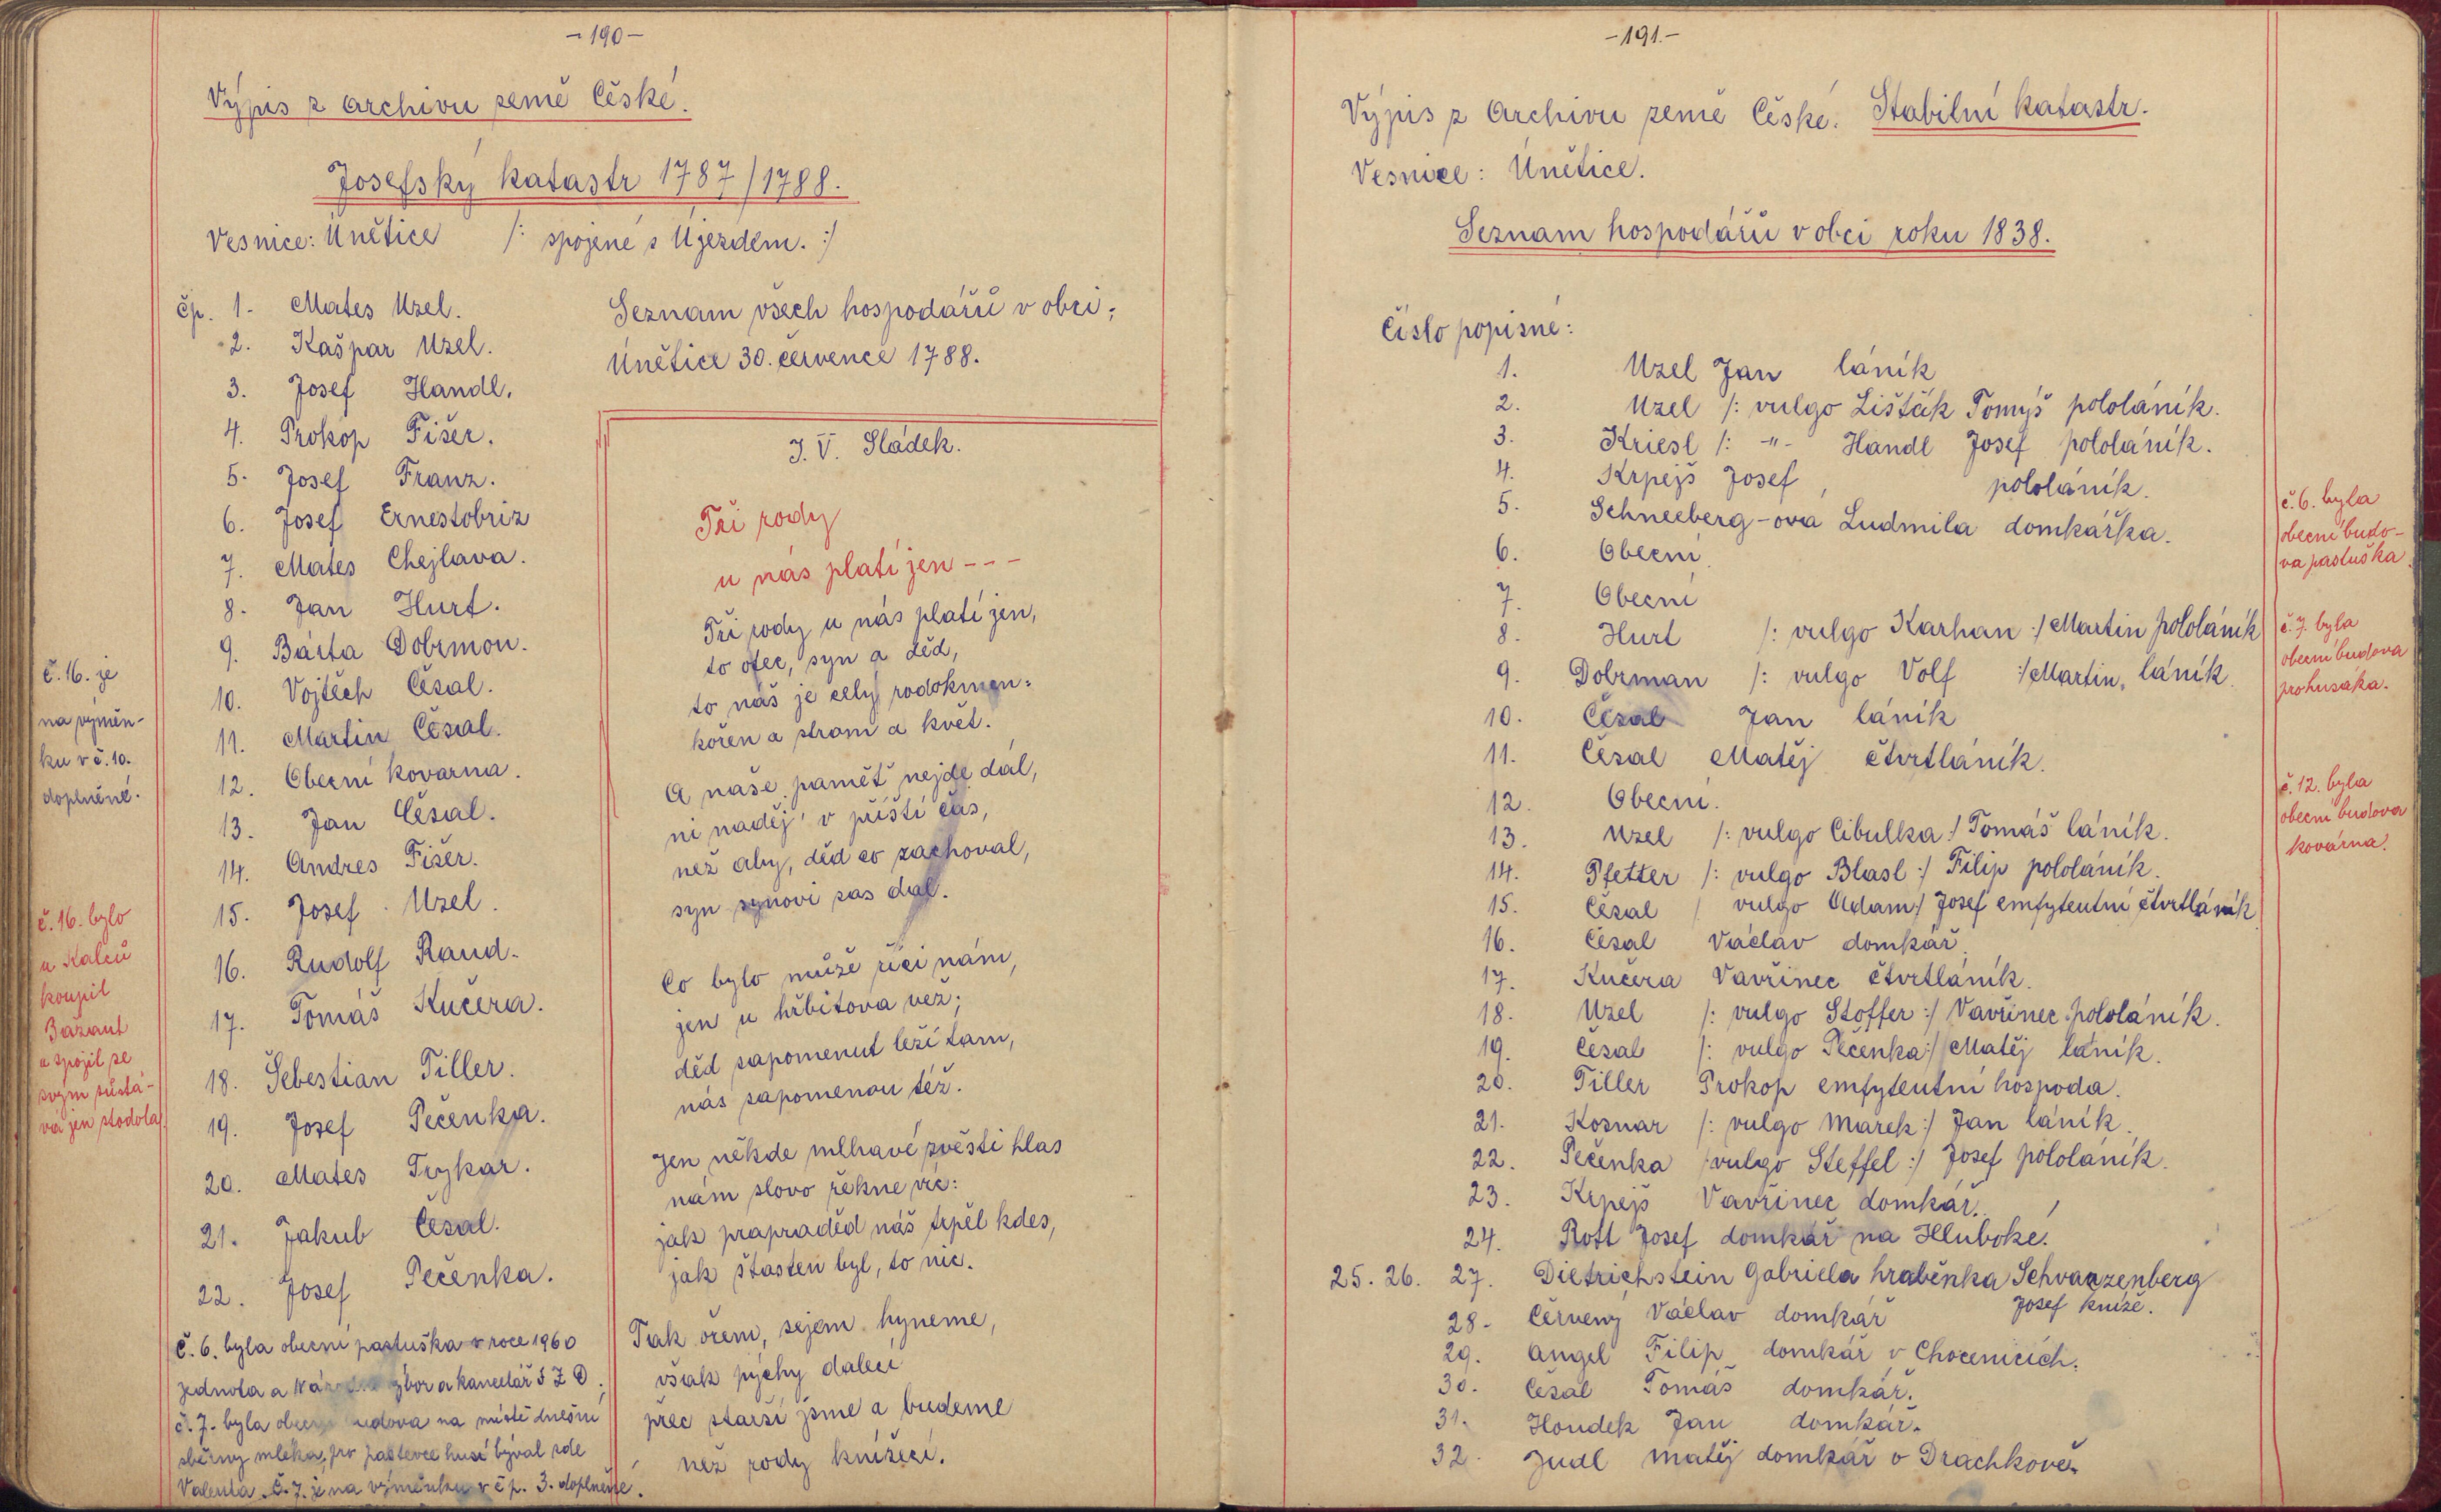 -190-
Výpis z archivu země České.
Josefský katastr 1787/1788.
Vesnice: Únětice /: spojené s Újezdem. :/
čp. 1. Mates Uzel.
2. Kašpar Uzel.
3. Josef Handl.
4. Prokop Fišer.
5. Josef Franz.
6. Josef Ernestobriz
7. Mates Chejlava.
8. Jan Hurt.
9. Bárta Dobrmon.
10. Vojtěch Čésal.
11. Martin Čésal.
12. Obecní kovarna.
13. Jan Čésal.
14. Andres Fišer.
15. Josef Uzel.
16. Rudolf Raud.
17. Tomáš Kučera.
18. Šebestian Tiller.
19. Josef Pečenka.
20. Mates Trykar.
21. Jakub Čésal.
22. Josef Pečenka.
Č. 6. byla obecní pastuška v roce 1960
jednota a výbor a kancelář J Z D;
č. 7. byla budova na místě dnešní
sběrny mléka, pro pastevce husí býval zde
Valenta. Č. 7. je na výměnku v čp. 3. doplněné.
č. 16. je
na výměn-
ku v č. 10.
doplněné.
č. 16. bylo
u Kalců
koupil
Bažant
a spojil se
svým zůstá-
va jen stodola
Seznam všech hospodářů v obci;
Únětice 30. července 1788.
J. V. Sládek.
Tři rody
u nás platí jen - - -
Tři rody u nás platí jen,
to otec, syn a děd,
to náš je celý rodokmen:
kořen a strom a květ.
A naše paměť nejde dál,
ni naděj' v příští čas,
než aby, děd co zachoval,
syn synovi zas dal.
Co bylo může říci nám,
jen u hřbitova věž;
děd zapomenut leží tam,
nás zapomenou též.
Jen někde mlhavé zvěsti hlas
nám slovo řekne víc:
jak prapraděd náš trpěl kdes,
jak šťasten byl, to nic.
Tak ořem, sejem hyneme,
však pýchy daleci
přec starší jsme a budeme
než rody knížecí.
-191.-
Výpis z Archivu země České. Stabilní katastr.
Vesnice: Únětice.
Seznam hospodářů v obci roku 1838.
Číslo popisné:
1. Uzel Jan láník
2. Uzel /: vulgo Lišťák Tomýš pololáník.
3. Kriesl /: -"- Handl Josef pololáník.
4. Krpejš Josef, pololáník.
5. Schneeberg-ová Ludmila domkářka.
6. Obecní
7. Obecní
8. Hurt /: vulgo Karhan :/ Martin pololáník
9. Dobrman /: vulgo Volf :/ Martin, láník.
10. Čésal Jan láník
11. Čésal Matěj čtvrtláník.
12. Obecní.
13. Uzel /: vulgo Cibulka :/ Tomáš láník.
14. Pfetter /: vulgo Blasl :/ Filip pololáník.
15. Čésal / vulgo Adam :/ Josef emfyteutní čtvrtláník
16. Čésal Václav domkář.
17. Kučera Vavřinec čtvrtláník.
18. Uzel /: vulgo Stoffer :/ Vavřinec pololáník.
19. Čésal /: vulgo Pečenka :/ Matěj láník.
20. Tiller Prokop emfyteutní hospoda.
21. Kosnar /: vulgo Marek :/ Jan láník.
22. Pečenka /vulgo Steffel :/ Josef pololáník.
23. Krpejš Vavřinec domkář.
24. Rott Josef domkář na Hluboké.
25. 26. 27. Dietrichstein Gabriela hraběnka Schvarzenberg
Josef kníže.
28. Červený Václav domkář
29. Angel Filip domkář v Chocenicích.
30. Čésal Tomáš domkář.
31. Houdek Jan domkář.
32. Judl Matěj domkář v Drachkově.
č. 6. byla
obecní budo-
va pastuška.
č. 7. byla
obecní budova
pro husáka.
č. 12. byla
obecní budova
kovárna.